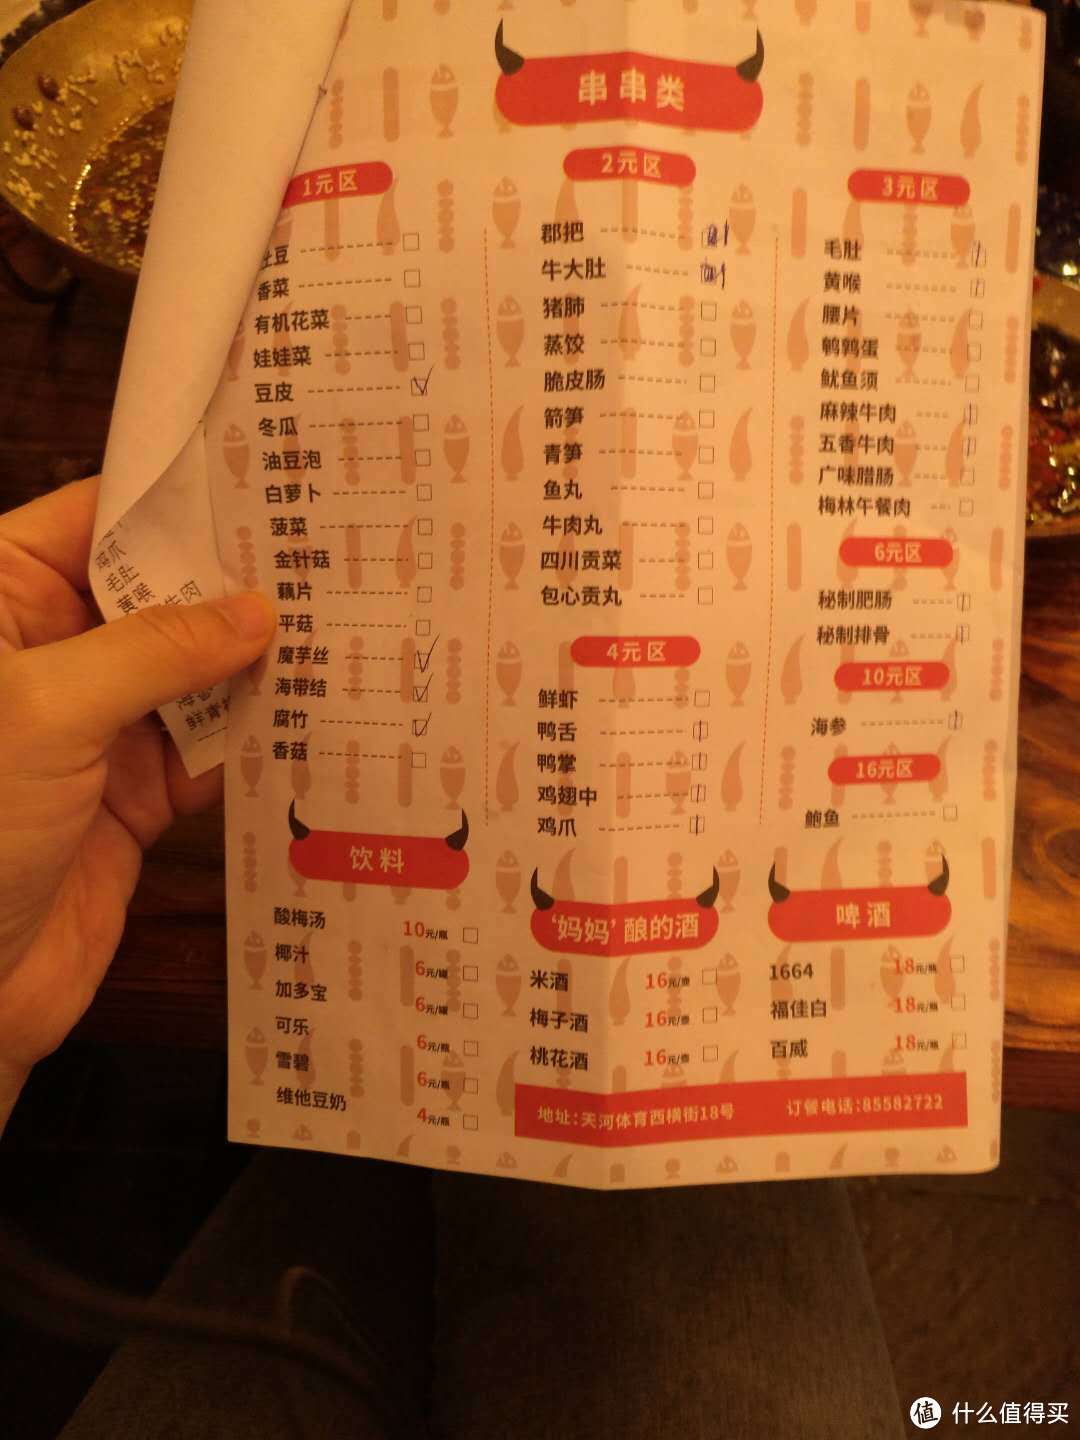 串串类
1元区
土豆
香菜
有机花菜
娃娃菜
豆皮
冬瓜
油豆泡
白萝卜
菠菜
金针菇
藕片
平菇
魔芋丝
海带结
腐竹
香菇
2元区
郡把
牛大肚
猪肺
蒸饺
脆皮肠
箭笋
青笋
鱼丸
牛肉丸
四川贡菜
包心贡丸
4元区
鲜虾
鸭舌
鸭掌
鸡翅中
鸡爪
3元区
毛肚
黄喉
腰片
鹌鹑蛋
鱿鱼须
麻辣牛肉
五香牛肉
广味腊肠
梅林午餐肉
6元区
秘制肥肠
秘制排骨
10元区
海参
16元区
鲍鱼
饮料
酸梅汤 10元/瓶
椰汁 6元/罐
加多宝 6元/罐
可乐 6元/瓶
雪碧 6元/瓶
维他豆奶 4元/瓶
‘妈妈’酿的酒
米酒 16元/壶
梅子酒 16元/壶
桃花酒 16元/壶
啤酒
1664 18元/瓶
福佳白 18元/瓶
百威 18元/瓶
地址:天河体育西横街18号 订餐电话:85582722
鸡爪
毛肚
黄喉
牛肉
值 什么值得买